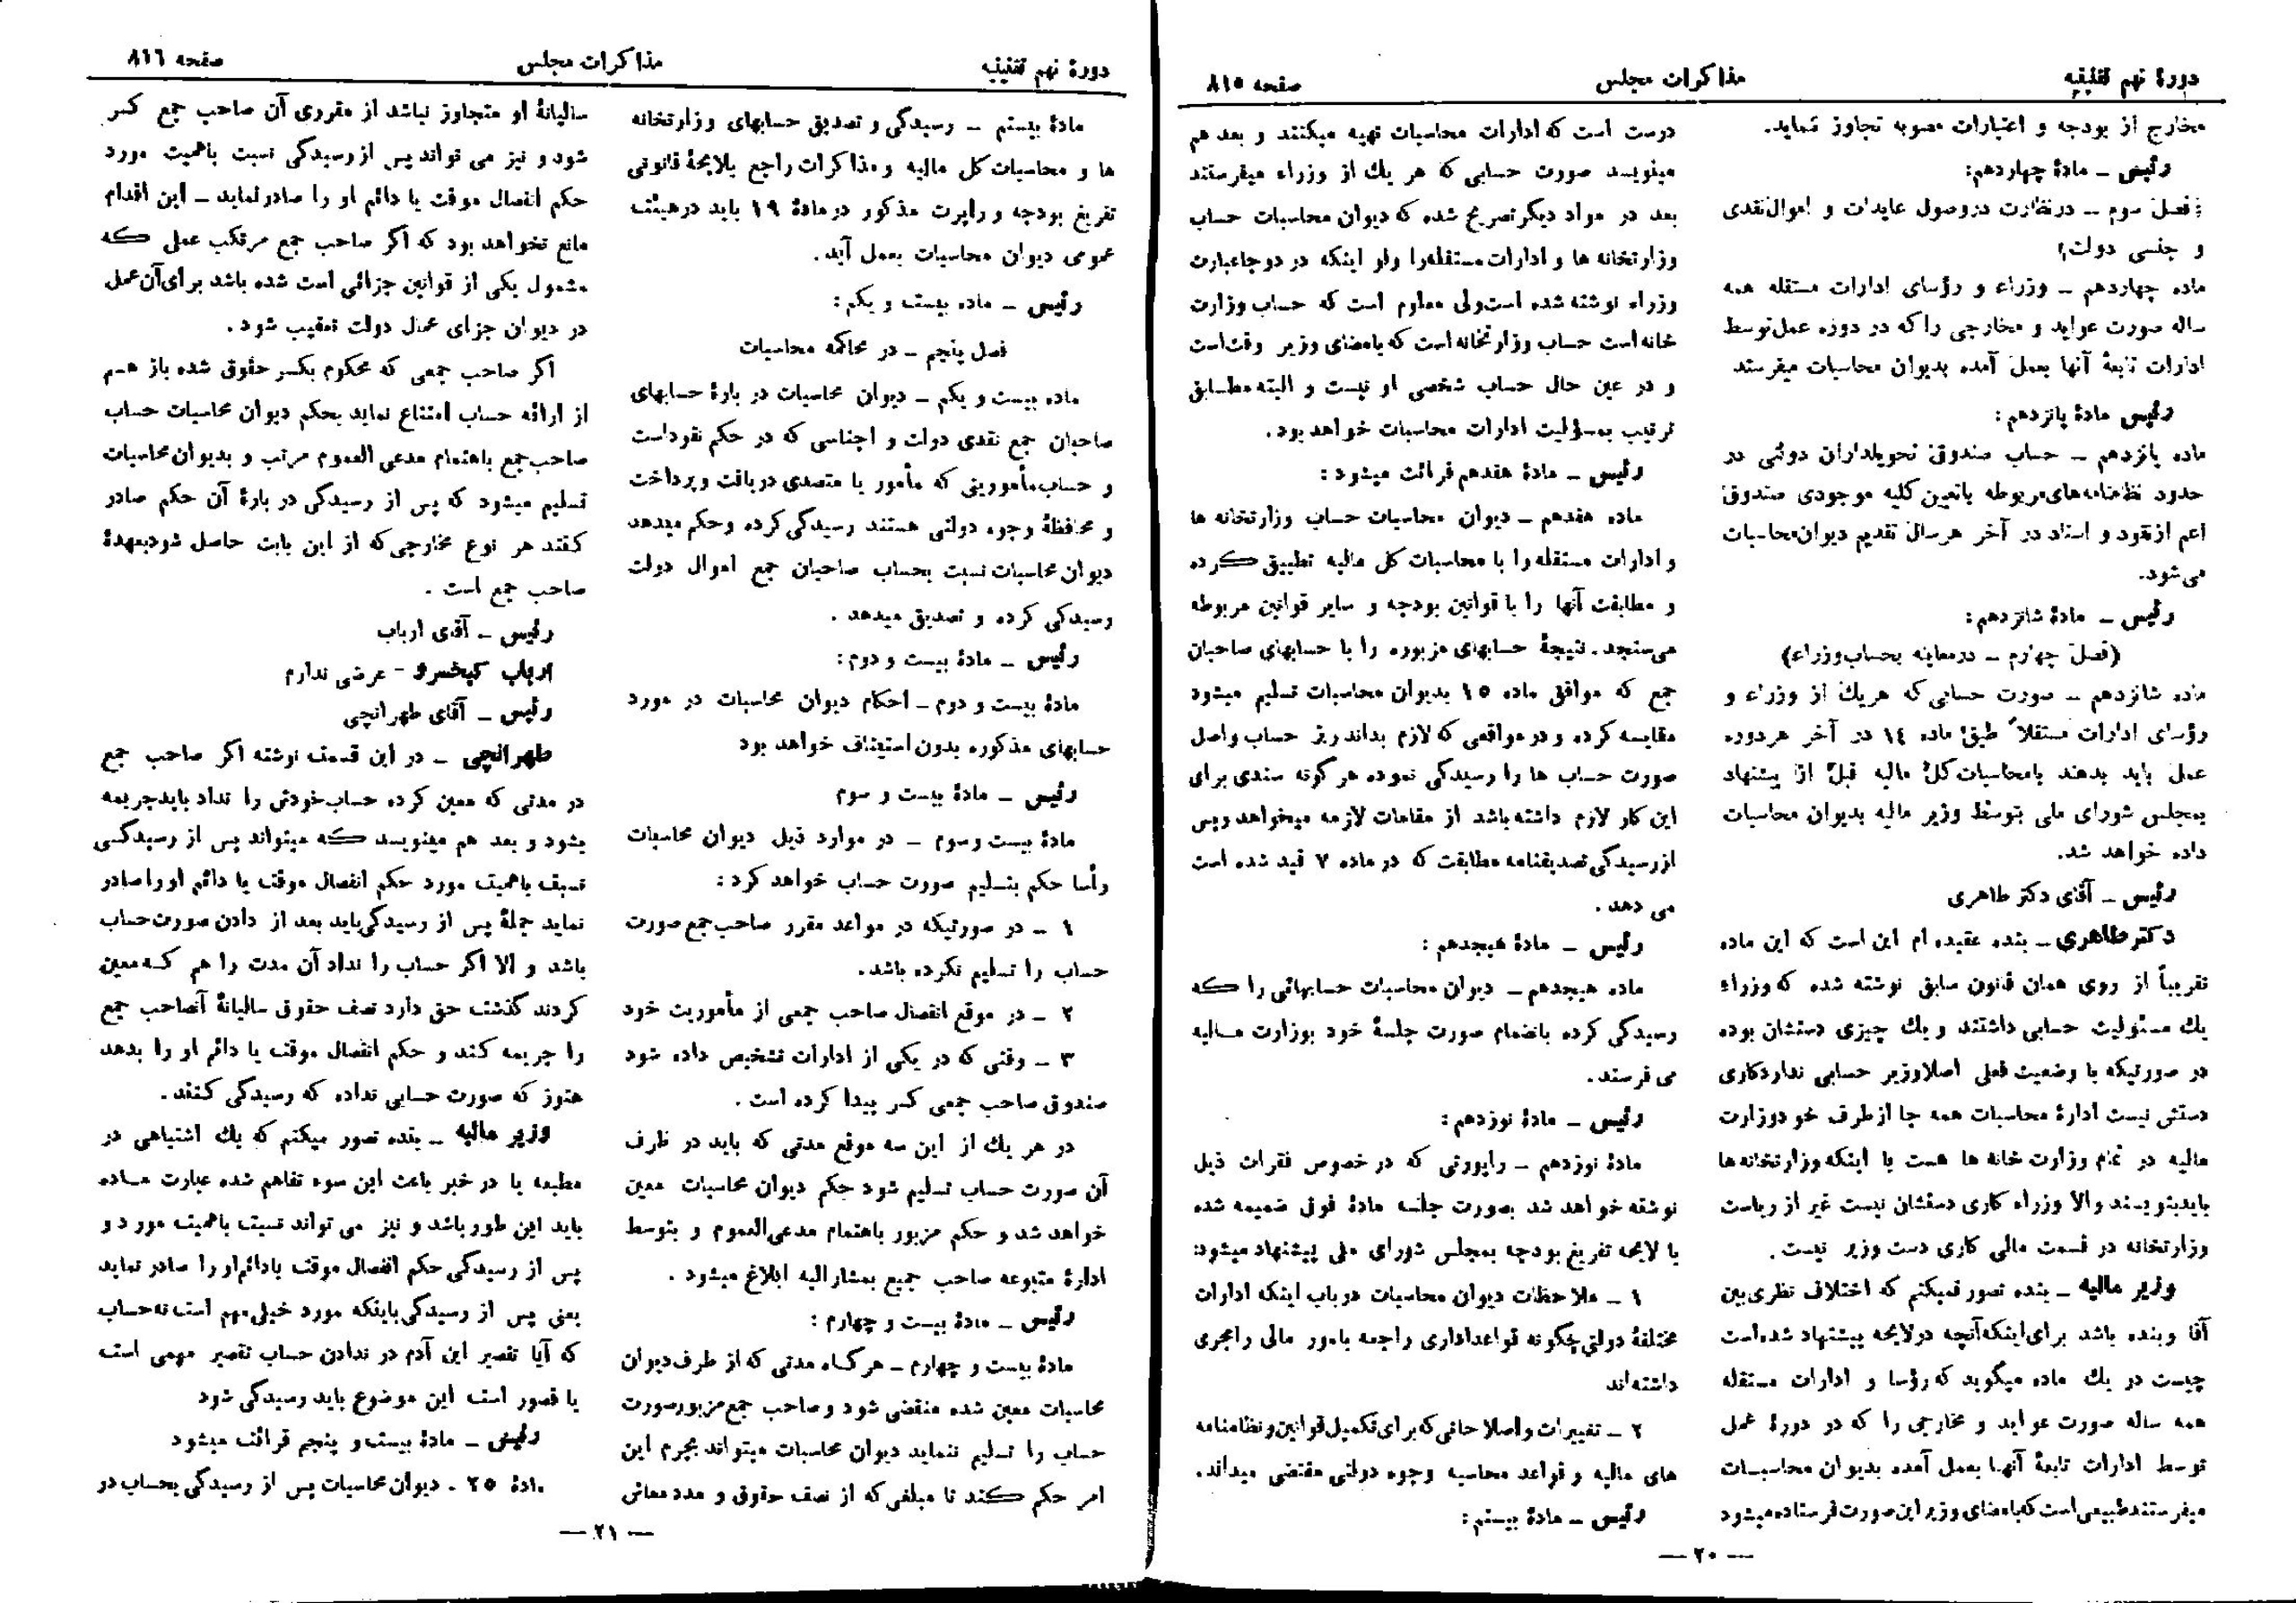 دورهٔ نهم تقنینیه
مذاکرات مجلس
صفحه ۸۱۵
مخارج از بودجه و اعتبارات مصوبه تجاوز نماید.
رئیس ــ مادهٔ چهاردهم:
(فصل سوم ــ در نظارت در وصول عایدات و اموال نقدی
و جنسی دولت)
ماده چهاردهم ــ وزراء و رؤسای ادارات مستقله همه
ساله صورت عواید و مخارجی را که در دوره عمل توسط
ادارات تابعهٔ آنها بعمل آمده بدیوان محاسبات میفرستد
رئیس مادهٔ پانزدهم:
ماده پانزدهم ــ حساب صندوق تحویلداران دولتی در
حدود نظامنامه‌های مربوطه با تعین کلیه موجودی صندوق
اعم از نقود و اسناد در آخر هر سال تقدیم دیوان محاسبات
می‌شود.
رئیس ــ مادهٔ شانزدهم:
(فصل چهارم ــ در معاینه بحساب وزراء)
ماده شانزدهم ــ صورت حسابی که هر یك از وزراء و
رؤسای ادارات مستقلاً طبق ماده ۱٤ در آخر هر دوره
عمل باید بدهند بامحاسبات کل مالیه قبل از پیشنهاد
بمجلس شورای ملی بتوسط وزیر مالیه بدیوان محاسبات
داده خواهد شد.
رئیس ــ آقای دکتر طاهری
دکتر طاهری ــ بنده عقیده ام این است که این ماده
تقریباً از روی همان قانون سابق نوشته شده که وزراء
یك مسئولیت حسابی داشتند و یك چیزی دستشان بوده
در صورتیکه با وضعیت فعلی اصلا وزیر حسابی ندارد کاری
دستش نیست ادارهٔ محاسبات همه جا از طرف خود وزارت
مالیه در تمام وزارت خانه ها هست یا اینکه وزارتخانه‌ها
باید بنویسند والا وزراء کاری دستشان نیست غیر از ریاست
وزارتخانه در قسمت مالی کاری دست وزیر نیست.
وزیر مالیه ــ بنده تصور نمیکنم که اختلاف نظری بین
آقا و بنده باشد برای اینکه آنچه در لایحه پیشنهاد شده است
چیست در یك ماده میگوید که رؤسا و ادارات مستقله
همه ساله صورت عواید و مخارجی را که در دورهٔ عمل
توسط ادارات تابعهٔ آنها بعمل آمده بدیوان محاسبات
میفرستند طبیعی است که بامضای وزیر این صورت فرستاده میشود
درست است که ادارات محاسبات تهیه میکنند و بعد هم
مینویسد صورت حسابی که هر یك از وزراء میفرستند
بعد در مواد دیگر تصریح شده که دیوان محاسبات حساب
وزارتخانه ها و ادارات مستقله را ولو اینکه در دو جا عبارت
وزراء نوشته شده است ولی معلوم است که حساب وزارت
خانه است حساب وزارتخانه است که بامضای وزیر وقت است
و در عین حال حساب شخصی او نیست و البته مطابق
ترتیب بمسؤلیت ادارات محاسبات خواهد بود.
رئیس ــ مادهٔ هفدهم قرائت میشود:
ماده هفدهم ــ دیوان محاسبات حساب وزارتخانه ها
و ادارات مستقله را با محاسبات کل مالیه تطبیق کرده
و مطابقت آنها را با قوانین بودجه و سایر قوانین مربوطه
می‌سنجد. نتیجهٔ حسابهای مزبوره را با حسابهای صاحبان
جمع که موافق ماده ۱۵ بدیوان محاسبات تسلیم میشود
مقایسه کرده و در مواقعی که لازم بداند ریز حساب واصل
صورت حساب ها را رسیدگی نموده هر گونه سندی برای
این کار لازم داشته باشد از مقامات لازمه میخواهد و پس
از رسیدگی تصدیقنامه مطابقت که در ماده ۷ قید شده است
می دهد.
رئیس ــ مادهٔ هیجدهم:
ماده هیجدهم ــ دیوان محاسبات حسابهائی را که
رسیدگی کرده بانضمام صورت جلسهٔ خود بوزارت مالیه
می فرستد.
رئیس ــ مادهٔ نوزدهم:
مادهٔ نوزدهم ــ راپورتی که در خصوص فقرات ذیل
نوشته خواهد شد بصورت جلسه مادهٔ فوق ضمیمه شده
با لایحه تفریغ بودجه بمجلس شورای ملی پیشنهاد میشود:
۱ ــ ملاحظات دیوان محاسبات در باب اینکه ادارات
مختلفهٔ دولتی چگونه قواعد اداری راجعه بامور مالی را مجری
داشته‌اند
۲ ــ تغییرات و اصلاحاتی که برای تکمیل قوانین و نظامنامه
های مالیه و قواعد محاسبه وجوه دولتی مقتضی میداند.
رئیس ــ مادهٔ بیستم:
ــ ۲۰ ــ
دورهٔ نهم تقنینیه
مذاکرات مجلس
صفحه ۸۱٦
مادهٔ بیستم ــ رسیدگی و تصدیق حسابهای وزارتخانه
ها و محاسبات کل مالیه و مذاکرات راجع بلایحهٔ قانونی
تفریغ بودجه و راپرت مذکور در مادهٔ ۱۹ باید در هیئت
عمومی دیوان محاسبات بعمل آید.
رئیس ــ ماده بیست و یکم:
فصل پنجم ــ در محاکمه محاسبات
ماده بیست و یکم ــ دیوان محاسبات در بارهٔ حسابهای
صاحبان جمع نقدی دولت و اجناسی که در حکم نقود است
و حساب مأمورینی که مأمور یا متصدی دریافت و پرداخت
و محافظهٔ وجوه دولتی هستند رسیدگی کرده و حکم میدهد
دیوان محاسبات نسبت بحساب صاحبان جمع اموال دولت
رسیدگی کرده و تصدیق میدهد.
رئیس ــ مادهٔ بیست و دوم:
مادهٔ بیست و دوم ــ احکام دیوان محاسبات در مورد
حسابهای مذکوره بدون استیناف خواهد بود
رئیس ــ مادهٔ بیست و سوم
مادهٔ بیست و سوم ــ در موارد ذیل دیوان محاسبات
رأسا حکم بتسلیم صورت حساب خواهد کرد:
۱ ــ در صورتیکه در مواعد مقرر صاحب جمع صورت
حساب را تسلیم نکرده باشد.
۲ ــ در موقع انفصال صاحب جمعی از مأموریت خود
۳ ــ وقتی که در یکی از ادارات تشخیص داده شود
صندوق صاحب جمعی کسر پیدا کرده است.
در هر یك از این سه موقع مدتی که باید در ظرف
آن صورت حساب تسلیم شود بحکم دیوان محاسبات معین
خواهد شد و حکم مزبور باهتمام مدعی العموم و بتوسط
ادارهٔ متبوعه صاحب جمع بمشارالیه ابلاغ میشود.
رئیس ــ مادهٔ بیست و چهارم:
مادهٔ بیست و چهارم ــ هر گاه مدتی که از طرف دیوان
محاسبات معین شده منقضی شود و صاحب جمع مزبور صورت
حساب را تسلیم ننماید دیوان محاسبات میتواند بجرم این
امر حکم کند تا مبلغی که از نصف حقوق و مدد معاش
سالیانهٔ او متجاوز نباشد از مقرری آن صاحب جمع کسر
شود و نیز می تواند پس از رسیدگی نسبت باهمیت مورد
حکم انفصال موقت یا دائم او را صادر نماید ــ این اقدام
مانع نخواهد بود که اگر صاحب جمع مرتکب عملی که
مشمول یکی از قوانین جزائی است شده باشد برای آن عمل
در دیوان جزای عمال دولت تعقیب شود.
اگر صاحب جمعی که محکوم بکسر حقوق شده باز هم
از ارائه حساب امتناع نماید بحکم دیوان محاسبات حساب
صاحب جمع باهتمام مدعی العموم مرتب و بدیوان محاسبات
تسلیم میشود که پس از رسیدگی در بارهٔ آن حکم صادر
کنند هر نوع مخارجی که از این بابت حاصل شود بعهدهٔ
صاحب جمع است.
رئیس ــ آقای ارباب
ارباب کیخسرو ــ عرضی ندارم
رئیس ــ آقای طهرانچی
طهرانچی ــ در این قسمت نوشته اگر صاحب جمع
در مدتی که معین کرده حساب خودش را نداد باید جریمه
بشود و بعد هم مینویسد که میتواند پس از رسیدگی
نسبت باهمیت مورد حکم انفصال موقت یا دائم او را صادر
نماید جملهٔ پس از رسیدگی باید بعد از دادن صورت حساب
باشد و الا اگر حساب را نداد آن مدت را هم که معین
کردند گذشت حق دارد نصف حقوق سالیانهٔ آنصاحب جمع
را جریمه کند و حکم انفصال موقت یا دائم او را بدهد
هنوز که صورت حسابی نداده که رسیدگی کنند.
وزیر مالیه ــ بنده تصور میکنم که یك اشتباهی در
مطبعه یا در خبر باعث این سوء تفاهم شده عبارت ماده
باید این طور باشد و نیز می تواند نسبت باهمیت مورد و
پس از رسیدگی حکم انفصال موقت یا دائم او را صادر نماید
یعنی پس از رسیدگی باینکه مورد خیلی مهم است نه حساب
که آیا تقصیر این آدم در ندادن حساب تقصیر مهمی است
یا قصور است این موضوع باید رسیدگی شود
رئیس ــ مادهٔ بیست و پنجم قرائت میشود
مادهٔ ۲۵ . دیوان محاسبات پس از رسیدگی بحساب در
ــ ۲۱ ــ